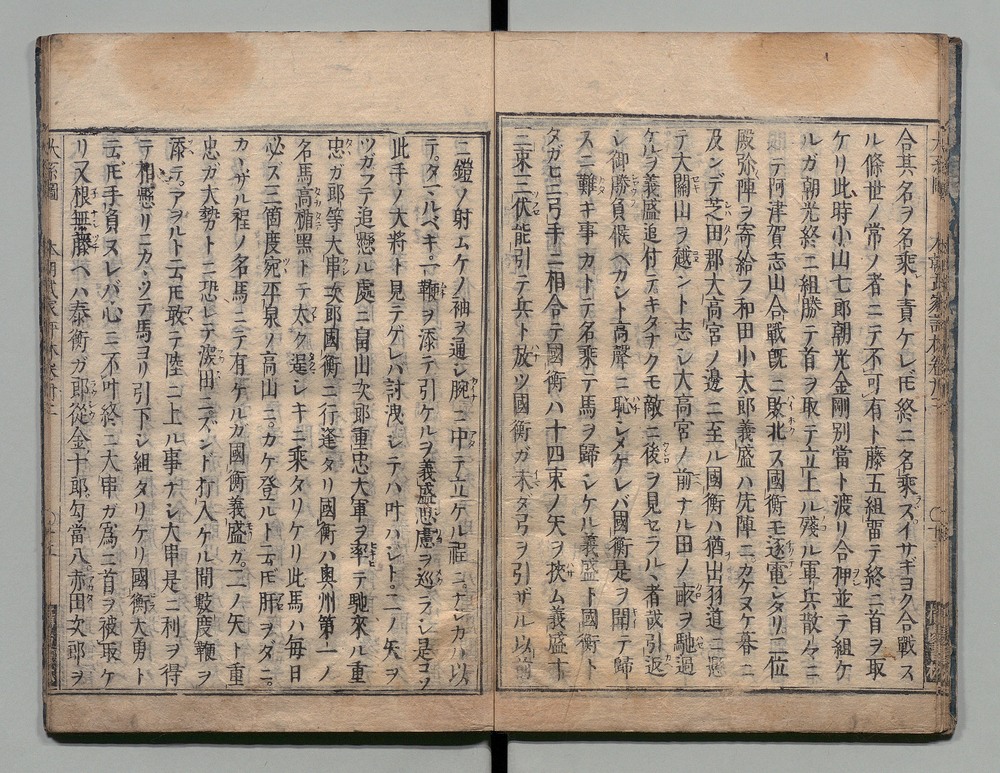 合其名ヲ名乘ト責ケレ𪜈終ニ名乘ズイサギヨク合戰ス
ル條世ノ常ノ者ニテ不可有ト藤五組畄テ終ニ首ヲ取
ケリ此時小山七郎朝光金剛別當ト渡リ合押並テ組ケ
ルガ朝光終ニ組勝テ首ヲ取テ立上ル殘ル軍兵散々ニ
如テ阿津賀志山合戰既ニ敗北ス國衡モ逐電シタリ二位
殿弥陣ヲ寄給フ和田小太郎義盛ハ先陣ニカケヌケ暮ニ
及ンデ芝田郡大高宮ノ邊ニ至ル國衡ハ猶出羽道ニ懸
テ大關山ヲ越ント志シ大高宮ノ前ナル田ノ畝ヲ馳過
ケルヲ義盛追付テキタナクモ敵ニ後ヲ見セラルヽ者哉引返
シ御勝負候ヘカシト高聲ニ恥シメケレバ國衡是ヲ聞テ歸
スニ難キ事カトテ名乘テ馬ヲ歸シケル義盛ト國衡ト
タガヒニ弓手ニ相合テ國衡ハ十四束ノ矢ヲ挾ム義盛十
三束三伏能引テ兵ト放ツ國衡ガ未タ弓ヲ引ザル以前
ニ鎧ノ射ムケノ袖ヲ通シ腕ニ中テ立ケル程ニナレカハ以
テタヽルベキ一鞭ヲ添テ引ケルヲ義盛思慮ヲ巡ラシ是コソ
此手ノ大將ト見テゲレハ討洩シテハ叶ハシト二ノ矢ヲ
ツガフテ追懸ル處ニ畠山次郎重忠大軍ヲ率テ馳來ル重
忠ガ郎等大串次郎國衡ニ行逢タリ國衡ハ奥州第一ノ
名馬高楯黑トテ太ク逞シキニ乘タリケリ此馬ハ毎日
必ズ三箇度宛平泉ノ高山ニカケ登ルト云𪜈肝ヲダニ
カヽザル程ノ名馬ニテ有ケルカ國衡義盛カ二ノ矢ト重
忠ガ大勢トニ恐レテ深田ニズント打入ケル間數度鞭ヲ
添テアヲルト云𪜈敢テ陸ニ上ル事ナシ大串是ニ利ヲ得
テ相懸リニカヽツテ馬ヨリ引下シ組タリケリ國衡大勇ト
云𪜈手負スレバ心ニ不叶終ニ大串ガ爲ニ首ヲ被取ケ
リ又根無藤ヘハ泰衡ガ郎從金十郎勾當八赤田次郎ヲ